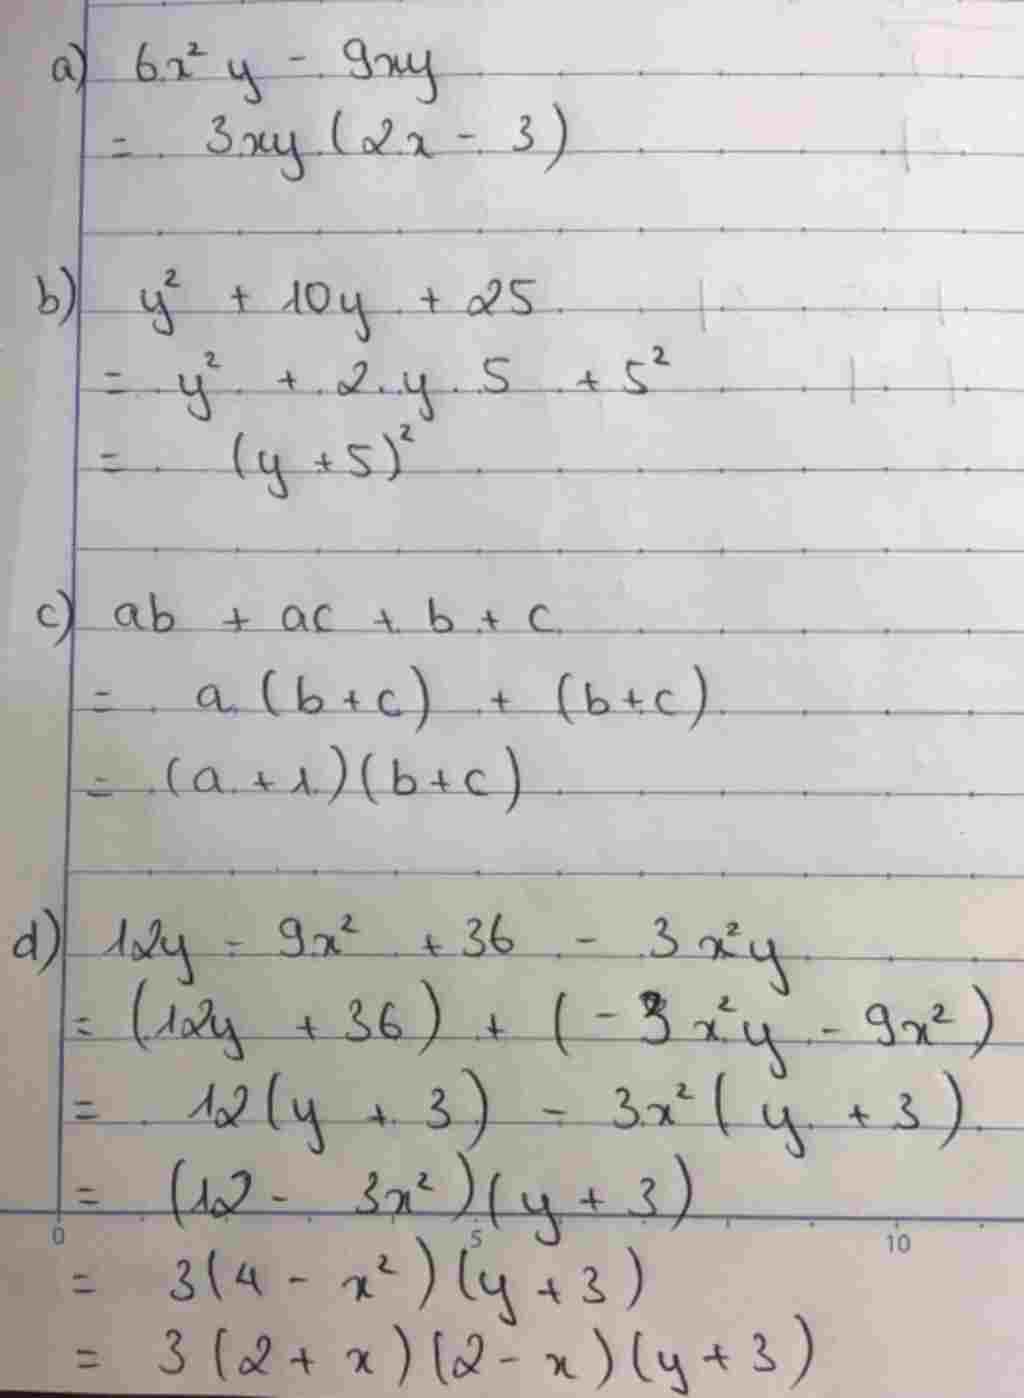 a) 6x² y - 9xy
= 3xy (2x - 3)
b) y² + 10y + 25
= y² + 2.y.5 + 5²
= (y + 5)²
c) ab + ac + b + c
= a (b+c) + (b+c)
= (a + 1)(b+c)
d) 12y - 9x² + 36 - 3x²y
= (12y + 36) + (-3x²y - 9x²)
= 12(y + 3) - 3x² (y + 3)
= (12 - 3x²)(y + 3)
0 5 10
= 3(4 - x²)(y + 3)
= 3(2 + x)(2 - x)(y + 3)